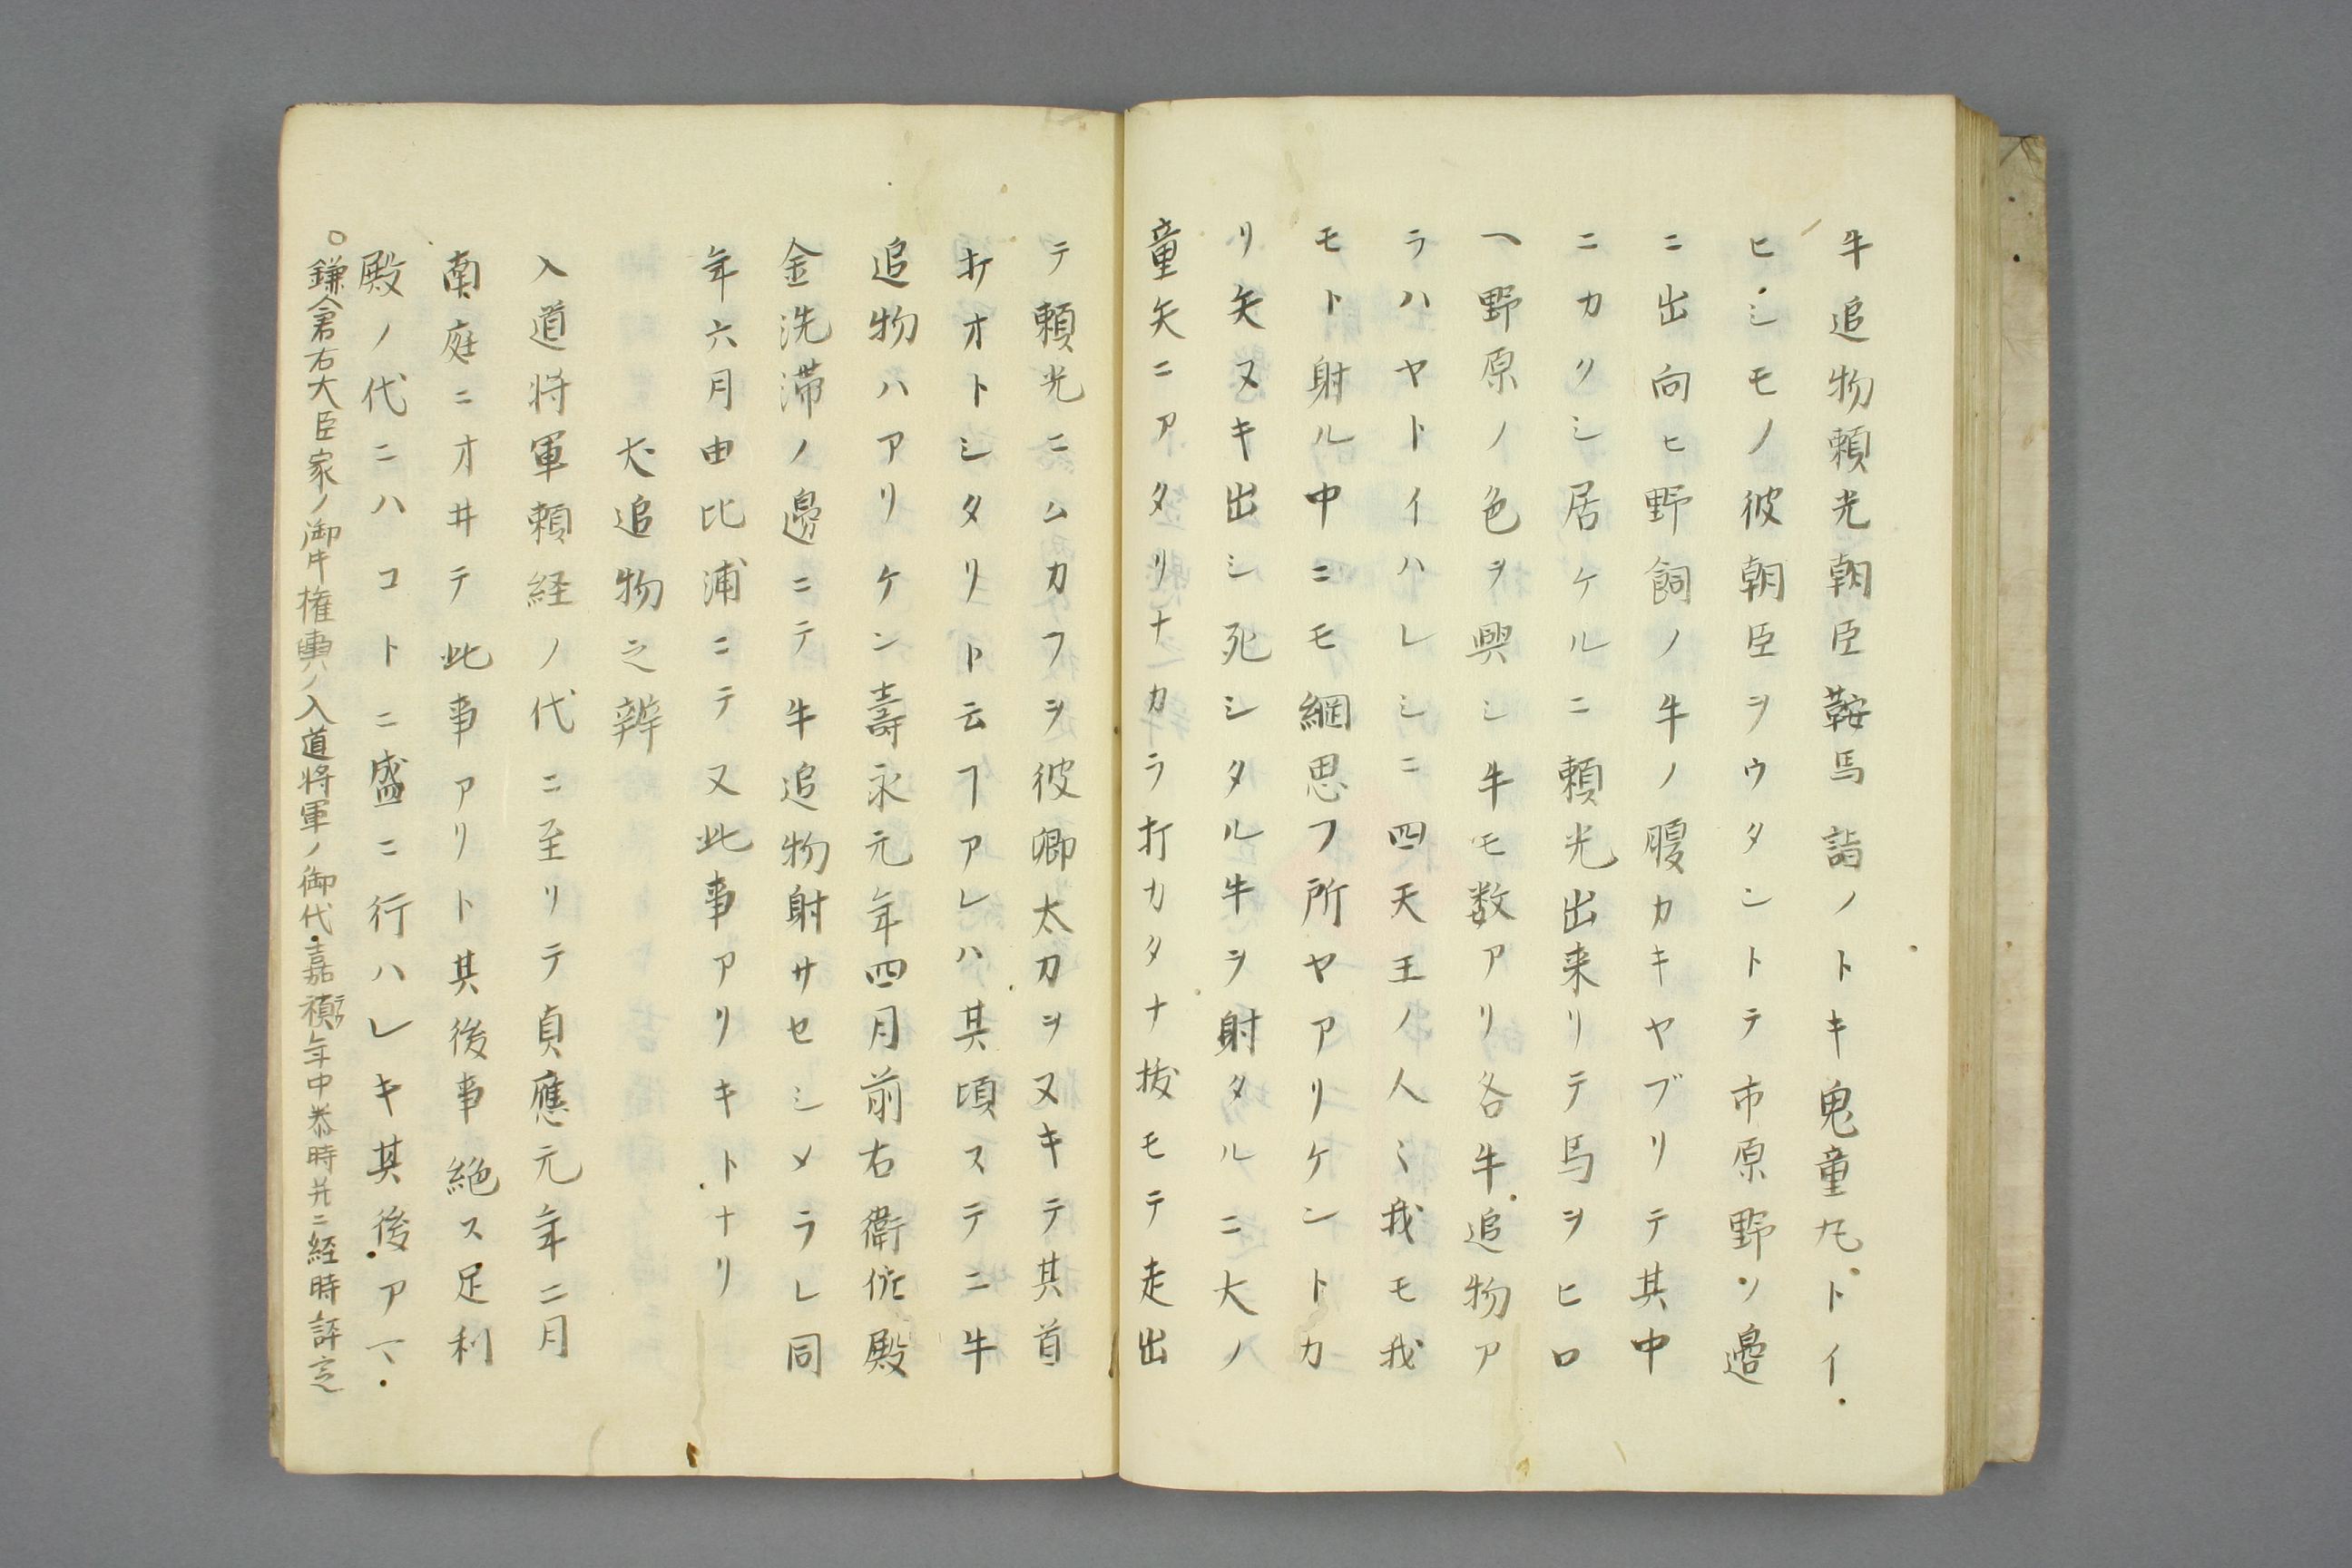 牛追物頼光朝臣鞍馬詣ノトキ鬼童丸トイ
ヒシモノ彼朝臣ヲウタントテ市原野ノ邉
ニ出向ヒ野飼ノ牛ノ腹カキヤブリテ其中
ニカクシ居ケルニ頼光出来リテ馬ヲヒロ
ヘ野原ノ色ヲ興シ牛モ数アリ各牛追物ア
ラハヤトイハレシニ四天王ノ人ミ我モ我
モト射ル中ニモ綱思フ所ヤアリケントカ
リ矢ヌキ出シ死シタル牛ヲ射タルニ大ノ
童矢ニアタリナカラ打カタナ抜モテ走出
テ頼光ニムカフヲ彼卿太刀ヲヌキテ其首
オトシタリト云フアレハ其頃ステニ牛
追物ハアリケン壽永元年四月前右衛佐殿
金洗滞ノ邊ニテ牛追物射サセシメラレ同
年六月由比浦ニテ又此事アリキトナリ
犬追物之辨
入道将軍頼経ノ代ニ至リテ貞應元年二月
南庭ニオ井テ此事アリト其後事絶ス足利
殿ノ代ニハコトニ盛ニ行ハレキ其後ア
○鎌倉右大臣家ノ御時権輿ノ入道将軍ノ御代嘉禎年中泰時并ニ経時評定